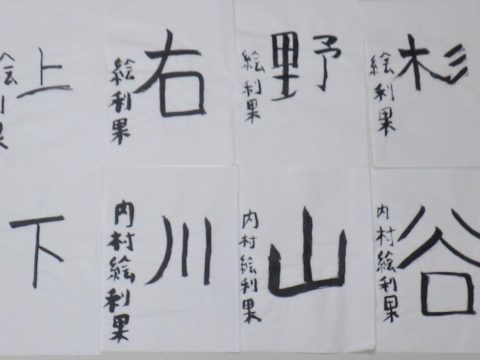 上
絵利果
右
絵利果
野
絵利果
杉
絵利果
下
川
内村絵利果
山
内村絵利果
谷
内村絵利果